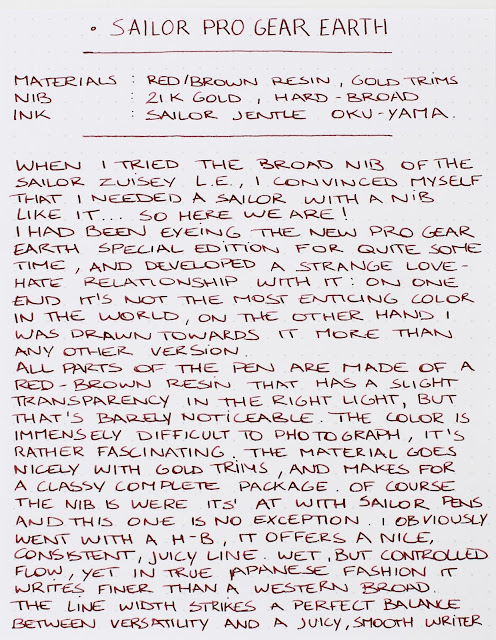 • SAILOR PRO GEAR EARTH
MATERIALS : RED/BROWN RESIN, GOLD TRIMS
NIB : 21K GOLD, HARD-BROAD
INK : SAILOR JENTLE OKU-YAMA.
WHEN I TRIED THE BROAD NIB OF THE
SAILOR ZUISEY L.E., I CONVINCED MYSELF
THAT I NEEDED A SAILOR WITH A NIB
LIKE IT... SO HERE WE ARE!
I HAD BEEN EYEING THE NEW PRO GEAR
EARTH SPECIAL EDITION FOR QUITE SOME
TIME, AND DEVELOPED A STRANGE LOVE-
HATE RELATIONSHIP WITH IT: ON ONE
END IT'S NOT THE MOST ENTICING COLOR
IN THE WORLD, ON THE OTHER HAND I
WAS DRAWN TOWARDS IT MORE THAN
ANY OTHER VERSION.
ALL PARTS OF THE PEN ARE MADE OF A
RED-BROWN RESIN THAT HAS A SLIGHT
TRANSPARENCY IN THE RIGHT LIGHT, BUT
THAT'S BARELY NOTICEABLE. THE COLOR IS
IMMENSELY DIFFICULT TO PHOTOGRAPH, IT'S
RATHER FASCINATING. THE MATERIAL GOES
NICELY WITH GOLD TRIMS, AND MAKES FOR
A CLASSY COMPLETE PACKAGE. OF COURSE
THE NIB IS WERE ITS' AT WITH SAILOR PENS
AND THIS ONE IS NO EXCEPTION. I OBVIOUSLY
WENT WITH A H-B, IT OFFERS A NICE,
CONSISTENT, JUICY LINE. WET, BUT CONTROLLED
FLOW, YET IN TRUE JAPANESE FASHION IT
WRITES FINER THAN A WESTERN BROAD.
THE LINE WIDTH STRIKES A PERFECT BALANCE
BETWEEN VERSATILITY AND A JUICY, SMOOTH WRITER